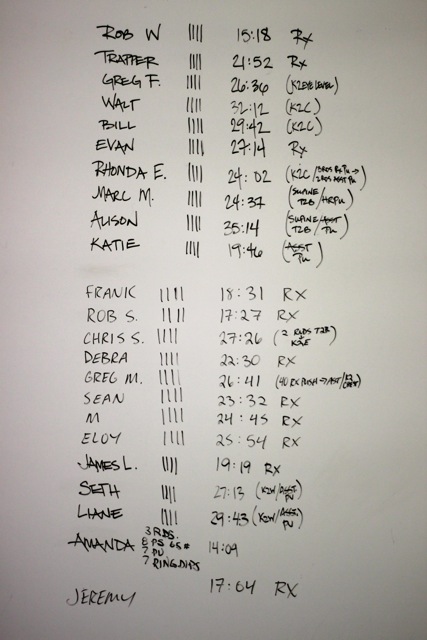 ROB W |||| 15:18 Rx
TRAPPER |||| 21:52 Rx
GREG F. |||| 26:36 (K2EYE LEVEL)
WALT |||| 32:12 (K2C)
BILL |||| 29:42 (K2C)
EVAN |||| 27:14 Rx
RHONDA E. |||| 24:02 (K2C/3RDS Rx PU → 2RDS ASST PU)
MARC M. |||| 24:37 (SUPINE T2B/HRPU)
ALISON |||| 35:14 (SUPINE T2B/ASST PU)
KATIE |||| 19:46 (ASST PU)
FRANK |||| 18:31 RX
ROB S. |||| 17:27 RX
CHRIS S. |||| 27:26 (2 RNDS T2B K2E)
DEBRA |||| 22:30 RX
GREG M. |||| 26:41 (40 RX PUSH → AST/K2 CHEST)
SEAN |||| 23:32 RX
M |||| 24:45 RX
ELOY |||| 25:54 RX
JAMES L. |||| 19:19 RX
SETH |||| 27:13 (K2W/ASST PU)
LIANE |||| 29:43 (K2W/ASST PU)
AMANDA 3 RDS. 14:09
8 PS 65#
7 PU
7 RING DIPS
JEREMY 17:04 RX